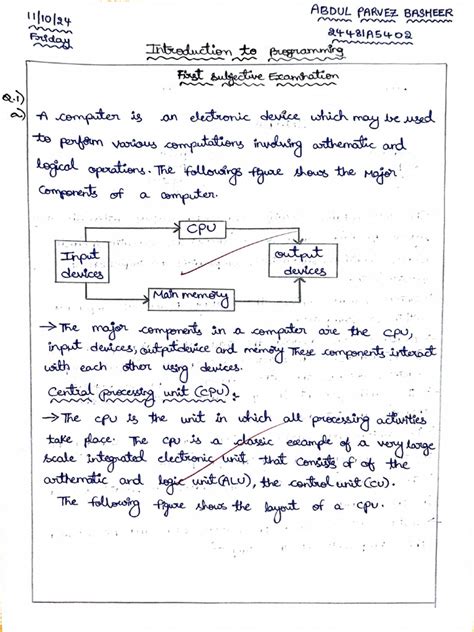 11/10/24
Friday
ABDUL PARVEZ BASHEER
24481A5402
Introduction to Programming
First Subjective Examination
Q.1)
a)
A computer is an electronic device which may be used
to perform various computations involving arthematic and
logical operations. The followings figure shows the Major
Components of a computer.
CPU
Input
devices
output
devices
Main memory
→ The major components in a computer are the CPU,
input devices, output device and memory These components interact
with each other using devices.
Central processing unit (CPU):
→ The CPU is the unit in which all processing activities
take place. The CPU is a classic example of a very large
scale integrated electronic unit that consists of of the
arthematic and logic unit (ALU), the control unit (CU).
The following figure shows the layout of a CPU.